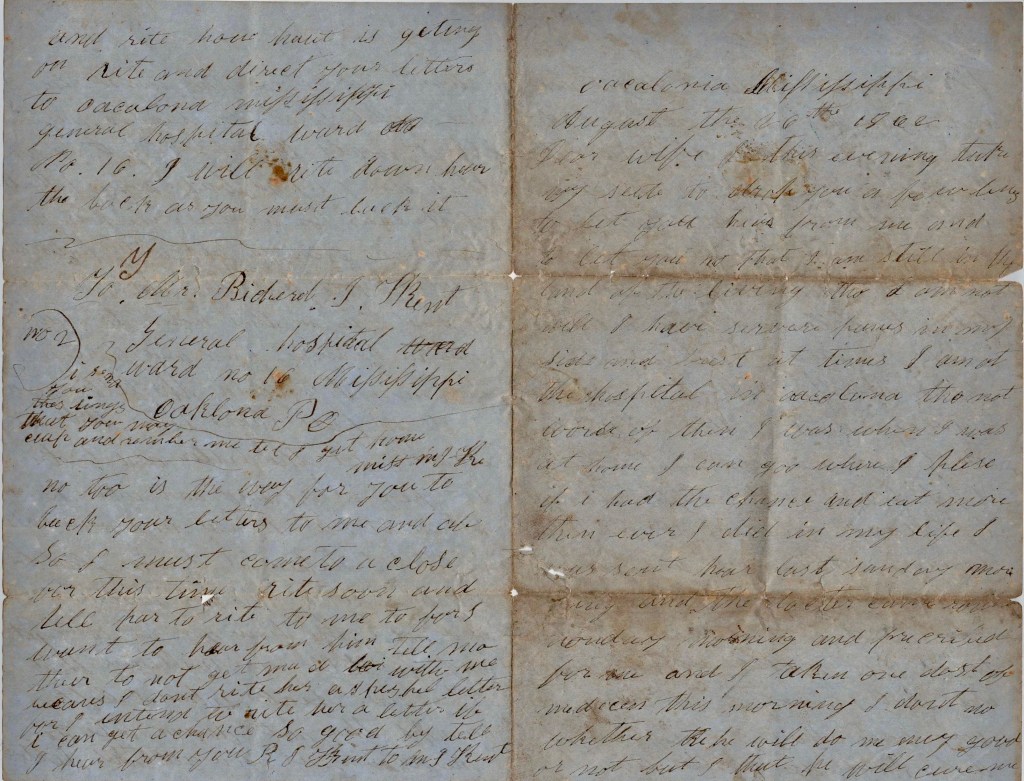 and rite how haut is geting
on rite and direct your letters
to oacalona mississippi
general hospital ward
No. 16. I will rite down hear
the back as you must back it
To Mr. Bicherd. J. Trent
General hospital
ward no 16 Mississippi
Oaklona P O
no 2
i send
you
this
that you may
and remember me tel I get home
miss m J
no too is the way for you to
back your letters to me and
So I must come to a close
for this time rite soon and
tell par to rite to me to for I
want to hear from him tell mo
ther to not get mad with me
becaus I dont rite her a letter
for I intend to rite her a letter if
i can get a chance so good by tell
I hear from you R J Trent to m J Trent
oacalonia Mississippi
August the 16th 1862
Dear wife I this evening take
my seate to drop you a few lines
to let you hear from me and
to let you no that I am still in the
land of the living tho I am not
well I have servere panes in my
side and brest at times I am at
the hospital in oacalona tho not
worse of then I was when I was
at home I can go where I plese
if i had the chance and eat more
then ever I did in my life I
was sent hear last sunday mor
ning and the docter came round
monday morning and precribed
for me and I taken one dost of
medecen this morning I dont no
whether the he will do me any good
or not but I he will cure me